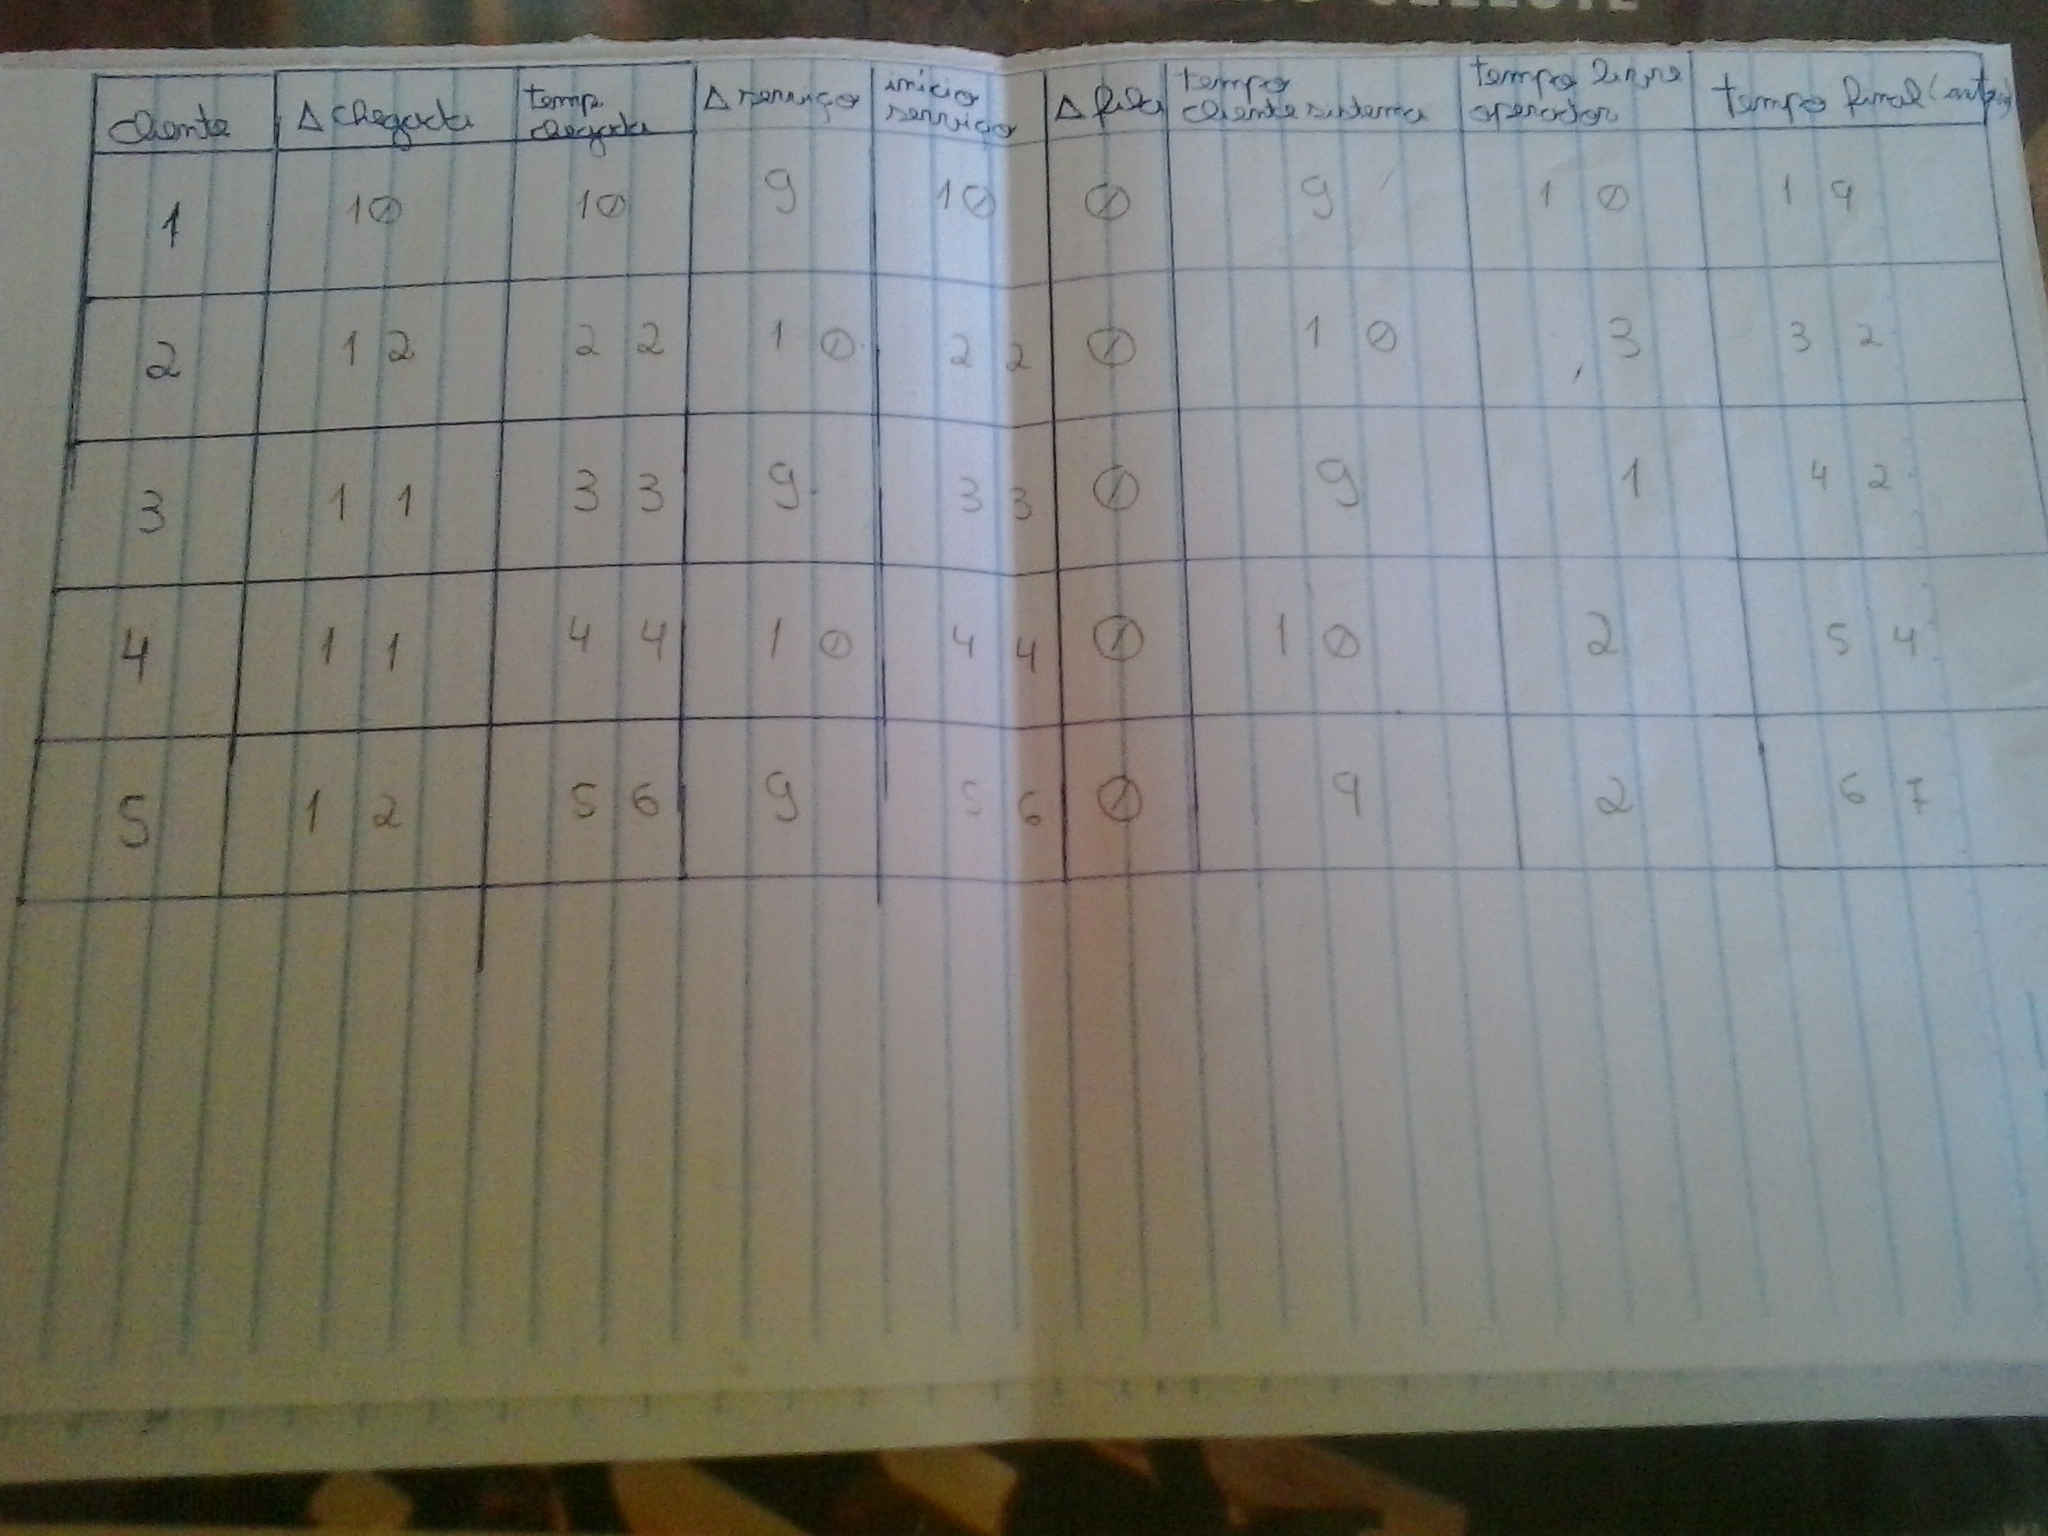 Cliente Δ chegada temp. chegada Δ serviço inicio serviço Δ fila tempo cliente sistema tempo livre operador tempo final
1 10 10 9 10 0 9 10 19
2 12 22 10 22 0 10 3 32
3 11 33 9 33 0 9 1 42
4 11 44 10 44 0 10 2 54
5 12 56 9 56 0 9 2 67